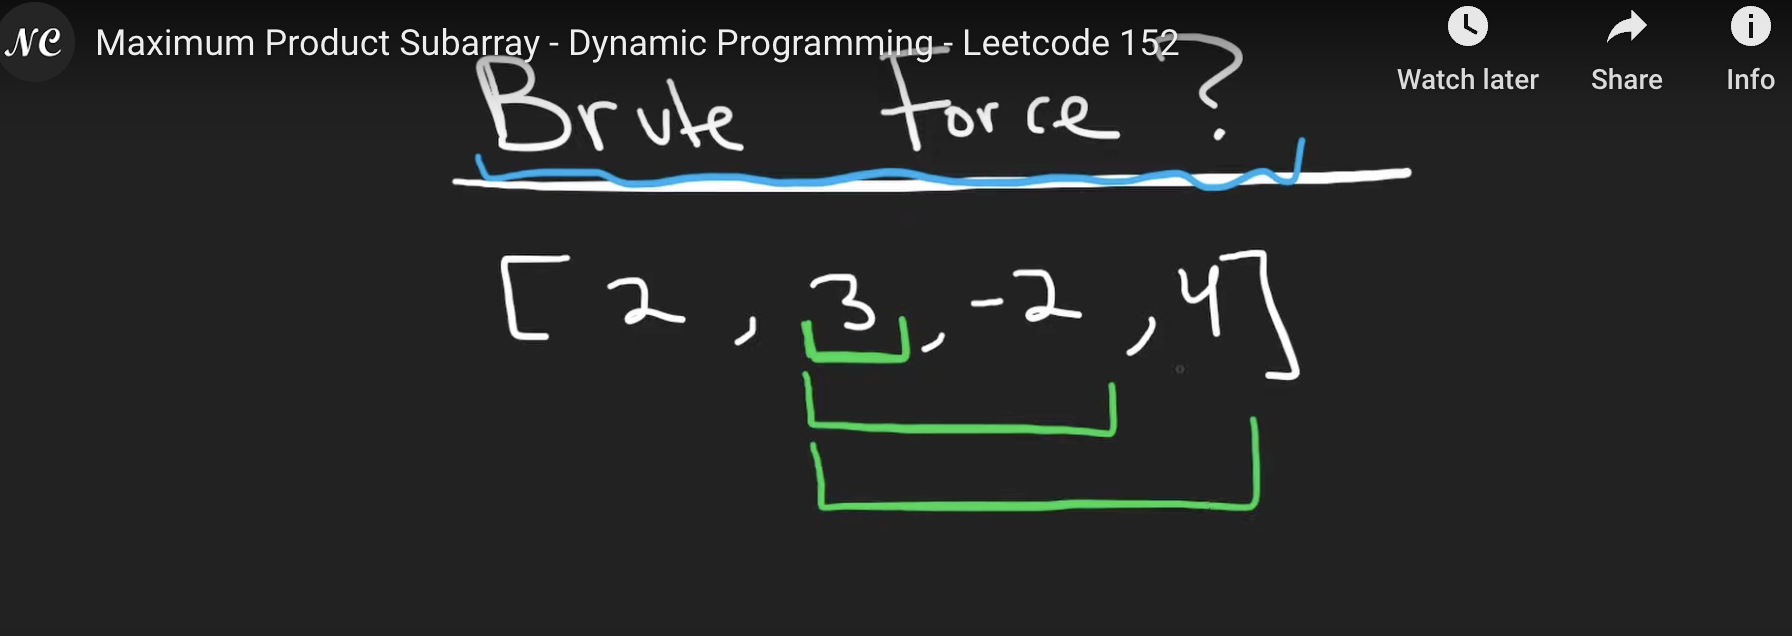 NC Maximum Product Subarray - Dynamic Programming - Leetcode 152
Watch later Share Info
Brute Force ?
[ 2 , 3 , -2 , 4 ]